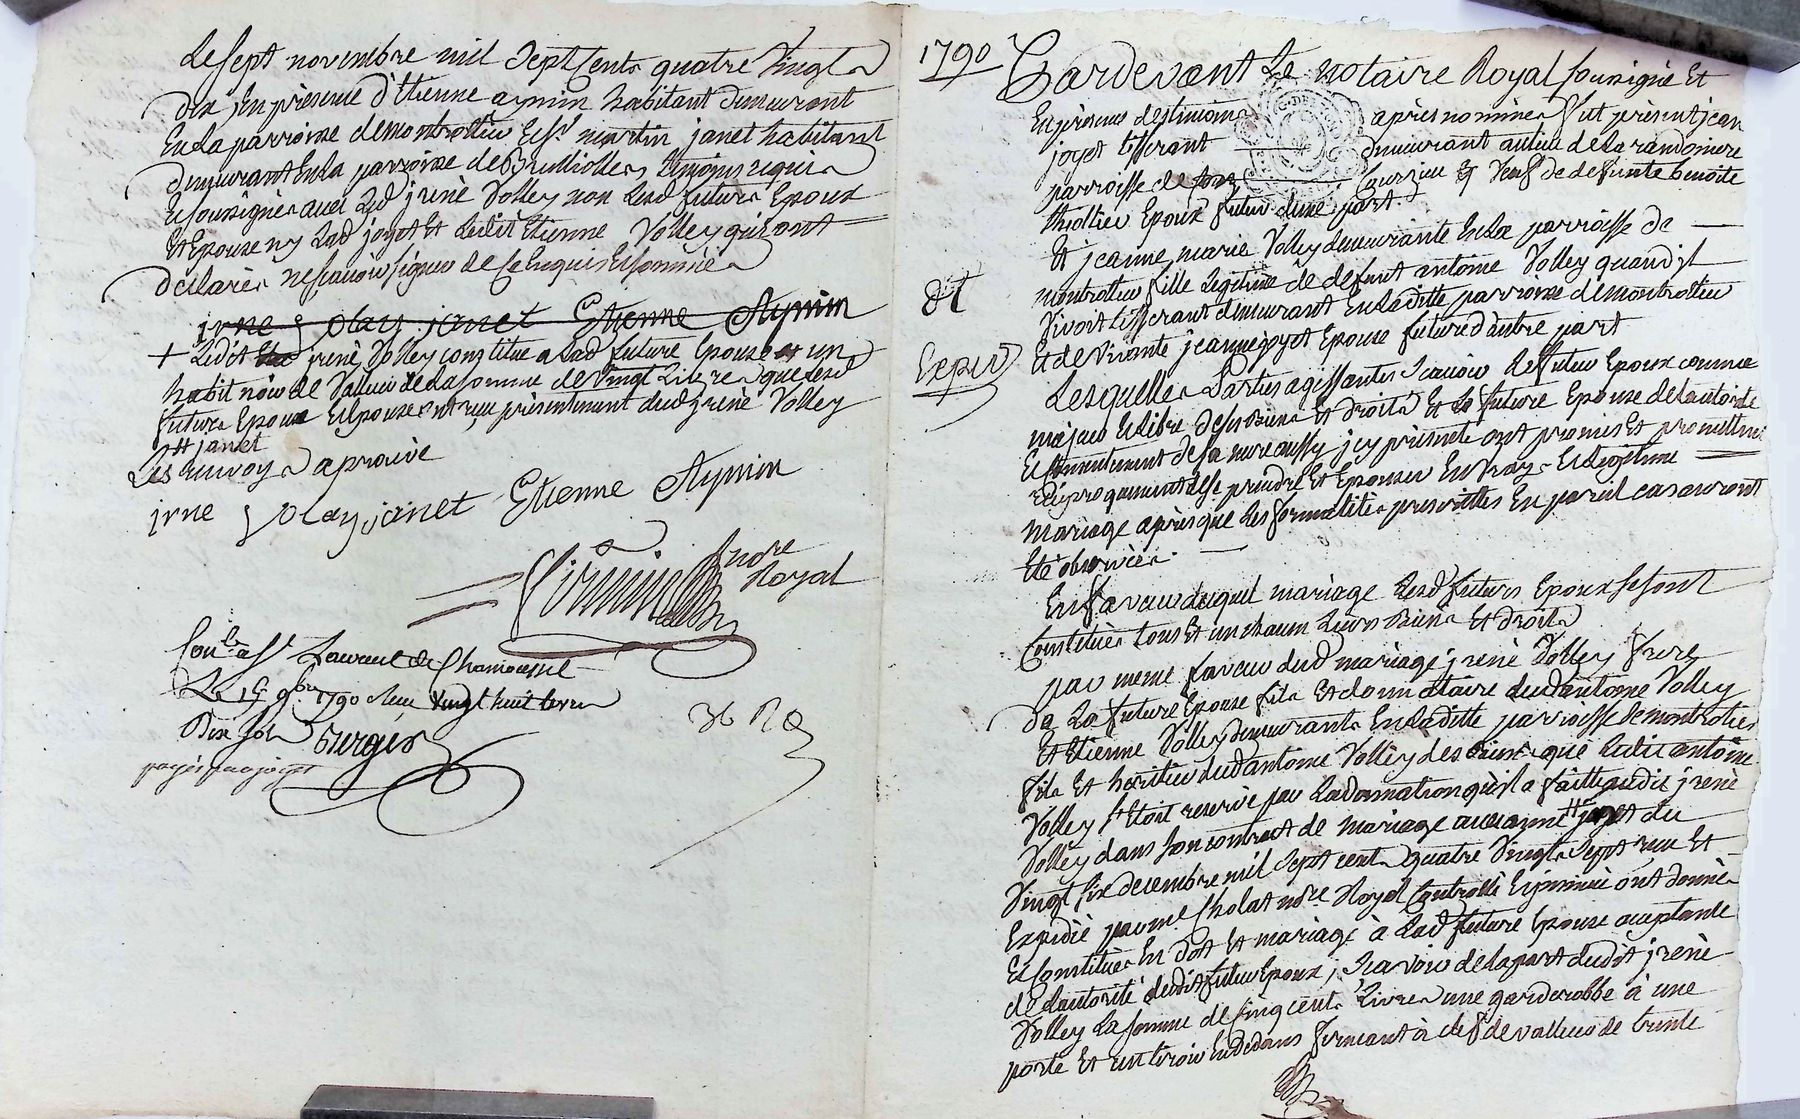 Le sept novembre mil sept cents quatre vingt
dix en présence d'Etienne aymin habitant demeurant
En la parroisse de montrottier Et sr martin janet habitant
demeurant En la parroisse de Brulliolles témoins requis
Et soussignés avec led jrenè Volley non Lesd futurs Epoux
Et Epouse ny Lad joyet Et Ledit Etienne Volley qui ont
déclarés ne scavoir signer de ce Enquis Et sommés
jrne volay janet Etienne Aymin
+ Ledit jrenè Volley constitue a Lad future Epouse un
habit noir de Valleur de La somme de vingt Livres que Lesd
futurs Epoux Et Epouse ont reçu présentement dud jrenè Volley
# janet
Les renvoys aprouvé
jrne volay janet Etienne Aymin
nore
Royal
Conlé a St Laurent de Chamousset
Le 9bre 1790 Reçu vingt huit livres
Dix sols Berger
payés par joyet
1790 Pardevant Le notaire Royal soussignè Et
En présence des témoins après nommés fut présent jean
joyet tisserant demeurant au lieu de La randonniere
parroisse de Et Veuf de defunte benoite
thiollier Epoux futur d'une part
Et jeanne marie Volley demeurante En La parroisse de
montrottier fille Legitime de defunt antoine Volley quand jl
Vivoit tisserant demeurant En Laditte parroisse de montrottier
Et de Vivante jeanne joyet Epouse future d'autre part
Expié
Lesquelles Parties agissantes scavoir Le futur Epoux comme
majeur Et libre de ses Biens Et droits Et La future Epouse de L'autorité
Et consentement de sa mere aussy jcy présente ont promis Et promettent
réciproquement de se prendre Et Epouser En vray Et Legitime
mariage après que Les formalités prescrittes En pareil cas auront
Eté observées
En faveur duquel mariage Lesd futurs Epoux se sont
Constitués tous Et un chacun Leurs Biens Et droits
par meme faveur dud mariage jrenè Volley frere
de La future Epouse fils Et donnataire dud antoine Volley
Et Etienne Volley demeurants En Laditte parroisse de montrottier
fils Et heritier dud antoine Volley des Biens que Ledit antoine
Volley s'Etoit reservé par La donnation qu'jl a faitte audit jrenè
Volley dans son contract de mariage avec anne # du
Vingt six decembre mil sept cents quatre Vingt sept reçu Et
Expedié par me Cholat nore Royal Controllé Et jnsinué ont donnés
Et constitués En dot Et mariage à Lad future Epouse acceptante
de L'autorité dudit futur Epoux, scavoir de La part dudit jrenè
Volley La somme de cinq cents Livres une garderobbe à une
porte Et un tiroir En dedans fermant à clef de valleur de trente